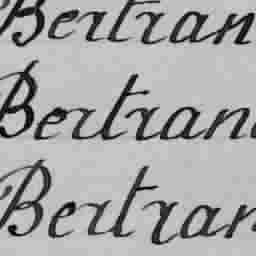 Bertran
Bertran
Bertran